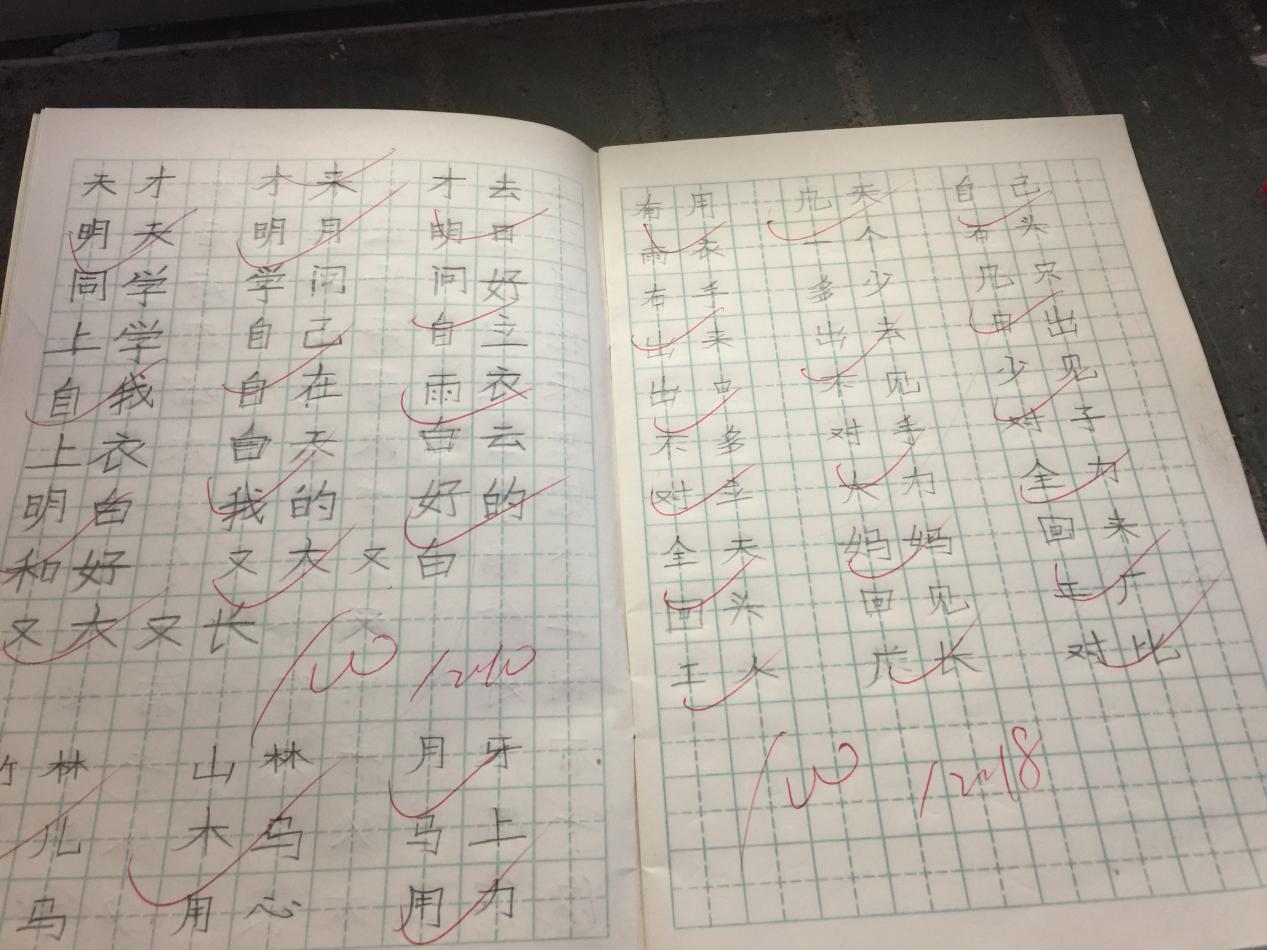 天才 才来 才去
明天 明月 明日
同学 学问 问好
上学 自己 自立
自我 自在 雨衣
上衣 白天 白云
明白 我的 好的
和好 又大又白
又大又长
100 12.10
竹林 山林 月牙
儿 木马 马上
马 用心 用力
有用 几天 自己
雨衣 一个 石头
右手 多少 几只
出来 出去 日出
出早 不见 少见
不多 对手 对子
对立 大力 全力
全天 妈妈 回来
回头 回见 工厂
工人 广长 对比
100 12.18